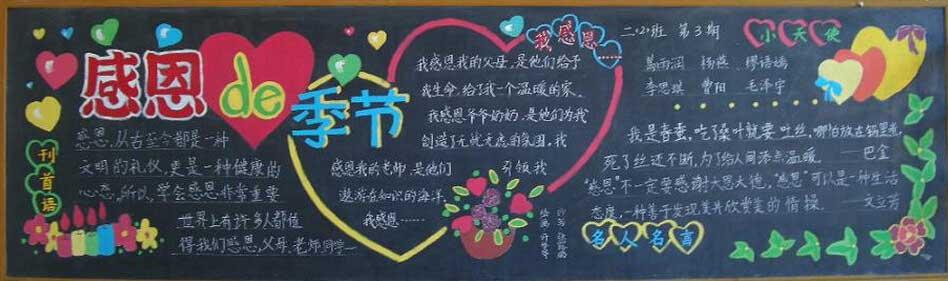 感恩de季节
刊首语
感恩,从古至今都是一种
文明的礼仪,更是一种健康的
心态,所以,学会感恩非常重要
世界上有许多人都值
得我们感恩,父母,老师同学…
我感恩……
我感恩我的父母,是他们给予
我生命,给了我一个温暖的家。
我感恩爷爷奶奶,是他们为我
创造了无忧无虑的氛围,我
感恩我的老师,是他们 引领我
遨游在知识的海洋,
我感恩……
二·(2)班 第3期
小天使
葛雨润 杨燕 缪语嫣
李思琪 曹阳 毛泽宇
我是春蚕,吃了桑叶就要吐丝,哪怕放在锅里煮,
死了丝还不断,为了给人间添点温暖。 ——巴金
“感恩”不一定要感谢大恩大德,“感恩”可以是一种生活
态度,一种善于发现美并欣赏美的情操。
名人名言